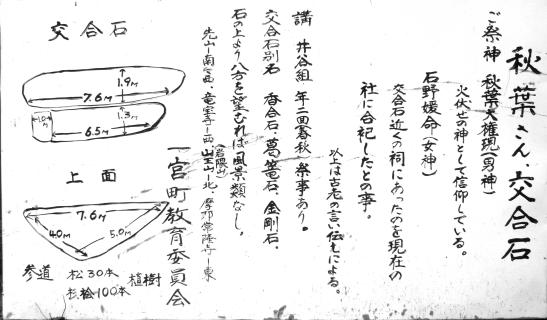 秋葉さん、交合石
ご祭神 秋葉大権現(男神)
火伏せの神として信仰している。
石野媛命(女神)
交合石近くの祠にあったのを現在の
社に合祀したとの事。
以上は古老の言い伝えによる。
講 井谷組 年二回(春秋)祭事あり。
交合石別名 香合石、葛篭石、金剛石、
石の上より八方を望むれば風景類なし。
先山−南 竜宝寺−西 山王山−北 摩耶常隆寺−東
(岩隈山)
一宮町教育委員会
交合石
1.9m
7.6m
1.3m
1.0m
6.5m
上面
7.6m
4.0m
5.0m
参道 松30本 植樹
杉桧100本